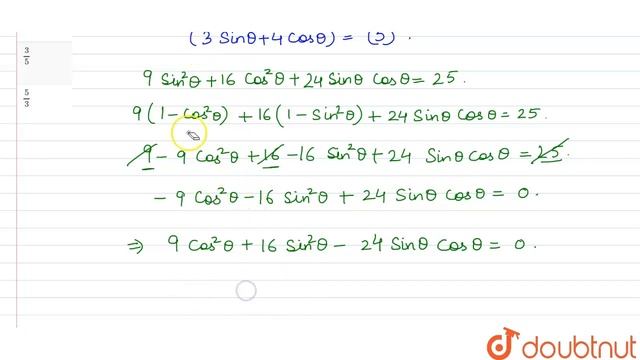 (3 Sinθ+4 Cosθ) = (5) .
9 Sin²θ + 16 Cos²θ + 24 Sinθ Cosθ = 25.
9(1-Cos²θ) + 16(1-Sin²θ) + 24 Sinθ Cosθ = 25.
9 - 9 Cos²θ + 16 - 16 Sin²θ + 24 Sinθ Cosθ = 25.
- 9 Cos²θ - 16 Sin²θ + 24 Sinθ Cosθ = 0.
⇒ 9 Cos²θ + 16 Sin²θ - 24 Sinθ Cosθ = 0.
doubtnut